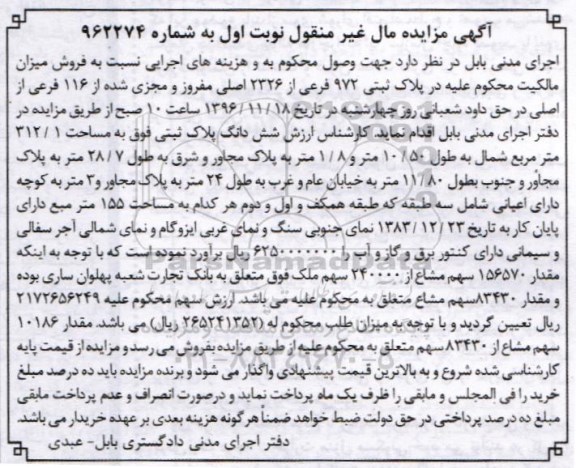 آگهی مزایده مال غیر منقول نوبت اول به شماره ۹۶۲۲۷۴
اجرای مدنی بابل در نظر دارد جهت وصول محکوم به و هزینه های اجرایی نسبت به فروش میزان
مالکیت محکوم علیه در پلاک ثبتی ۹۷۲ فرعی از ۲۳۲۶ اصلی مفروز و مجزی شده از ۱۱۶ فرعی از
اصلی در حق داود شعبانی روز چهارشنبه در تاریخ ۱۳۹۶/۱۱/۱۸ ساعت ۱۰ صبح از طریق مزایده در
دفتر اجرای مدنی بابل اقدام نماید. کارشناس ارزش شش دانگ پلاک ثبتی فوق به مساحت ۳۱۲/۱
متر مربع شمال به طول ۱۰/۵۰ متر و ۸/۱ متر به پلاک مجاور و شرق به طول ۲۸/۷ متر به پلاک
مجاور و جنوب بطول ۱۱/۸۰ متر به خیابان عام و غرب به طول ۲۴ متر به پلاک مجاور و۳ متر به کوچه
دارای اعیانی شامل سه طبقه که طبقه همکف و اول و دوم هر کدام به مساحت ۱۵۵ متر مبع دارای
پایان کار به تاریخ ۱۳۸۳/۱۲/۲۳ نمای جنوبی سنگ و نمای غربی ایزوگام و نمای شمالی آجر سفالی
و سیمانی دارای کنتور برق و گاز و آب را ریال برآورد نموده است که با توجه به اینکه
مقدار ۱۵۶۵۷۰ سهم مشاع از ۲۴۰۰۰۰ سهم ملک فوق متعلق به بانک تجارت شعبه پهلوان ساری بوده
و مقدار ۸۳۴۳۰سهم مشاع متعلق به محکوم علیه می باشد. ارزش سهم محکوم علیه ۲۱۷۲۶۵۶۲۴۹
ریال تعیین گردید و با توجه به میزان طلب محکوم له (۲۶۵۲۴۱۳۵۲ ریال) می باشد. مقدار ۱۰۱۸۶
سهم مشاع از ۸۳۴۳۰سهم متعلق به محکوم علیه از طریق مزایده بفروش می رسد و مزایده از قیمت پایه
کارشناسی شده شروع و به بالاترین قیمت پیشنهادی واگذار می شود و برنده مزایده باید ده درصد مبلغ
خرید را فی المجلس و مابقی را ظرف یک ماه پرداخت نماید و درصورت انصراف و عدم پرداخت مابقی
مبلغ ده درصد پرداختی در حق دولت ضبط خواهد ضمناً هر گونه هزینه بعدی بر عهده خریدار می باشد.
دفتر اجرای مدنی دادگستری بابل- عبدی